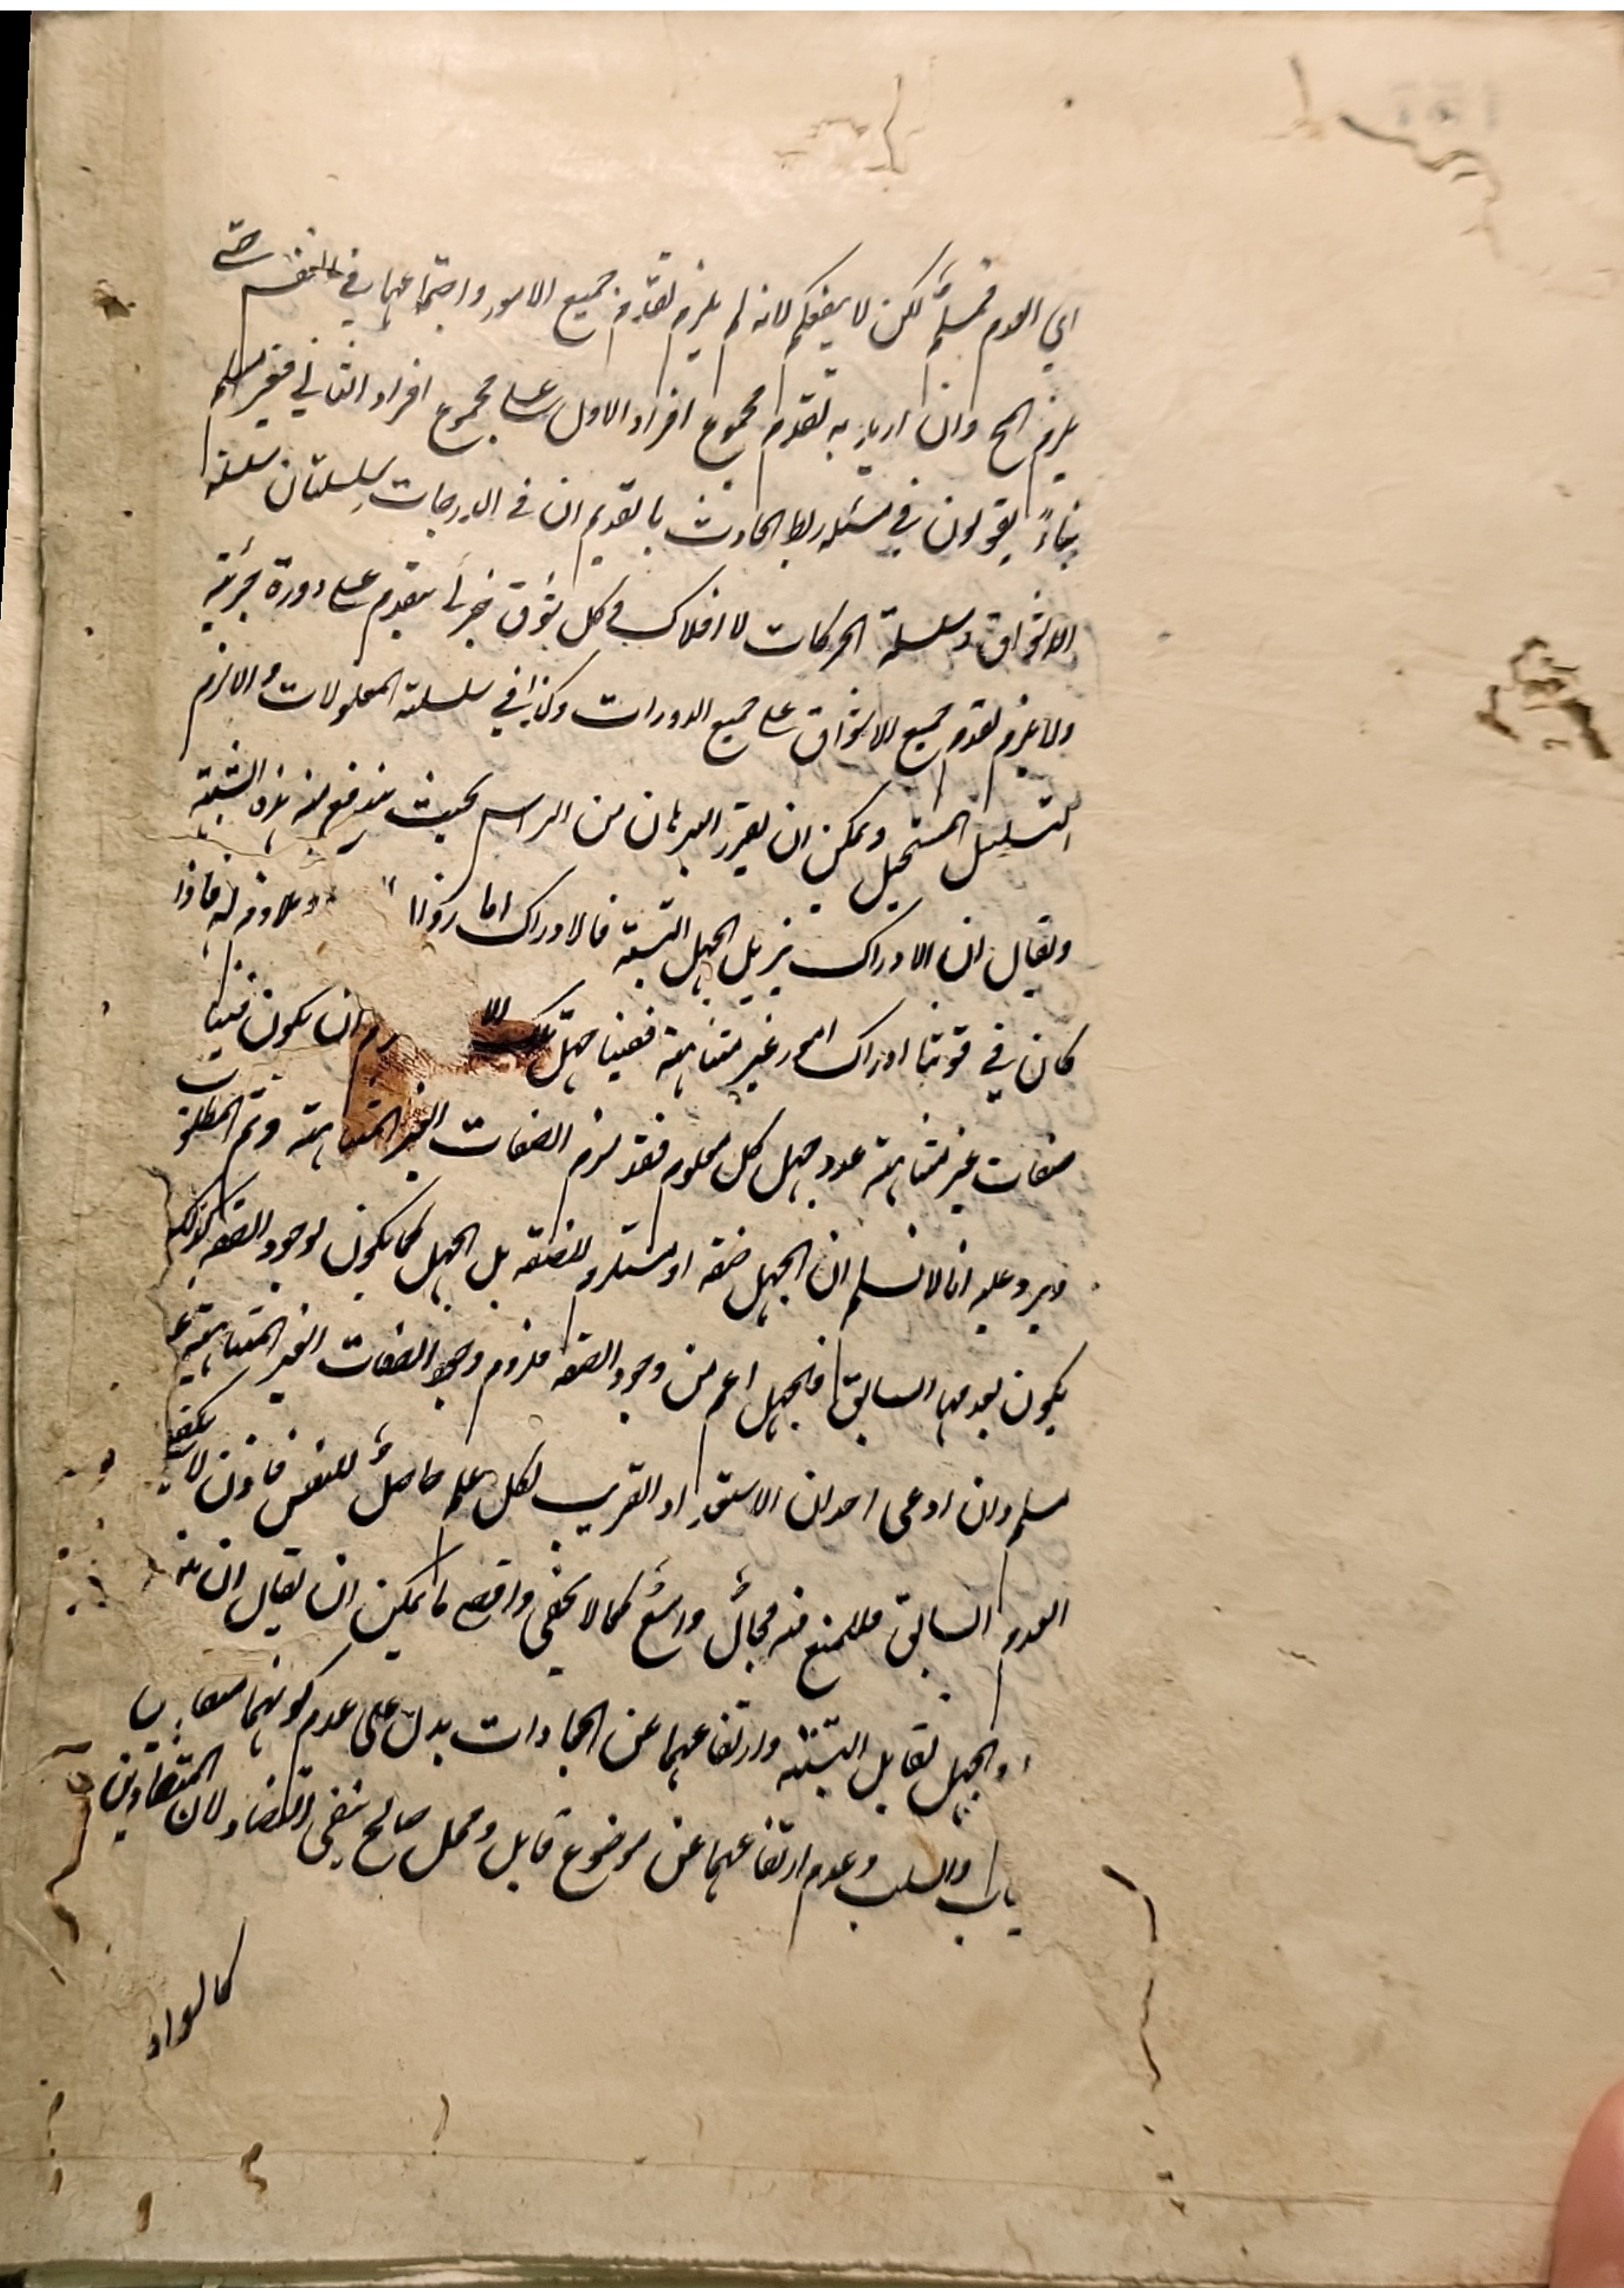 اي العدم فمسلّم لكن لا ينفعكم لانه لم يلزم تقدّم جميع الامور واجتماعها في النفس حتى
يلزم المح وان اريد به تقدم مجموع افراد الاول على مجموع افراد الثاني فغير مسلم
بناءً يقولون في مسئلة ربط الحادث بالقديم ان في الدرجات سلسلتان سلسلة
الاشواق وسلسلة الحركات لا افلاك في كل شوق جزئي يتقدم على دورة جزئية
ولا يلزم تقدم جميع الاشواق على جميع الدورات وكذا في سلسلة المعلولات والا لزم
التسلسل المستحيل ويمكن ان يقرر البرهان من الراس بحيث يندفع منه هذه الشبهة
ويقال ان الادراك يزيل الجهل البتة فالادراك اما زوال له فاذا
كان في قوتنا ادراك امور غير متناهية ففينا جهل ان يكون فينا
صفات غير متناهية عدد جهل كل معلوم فقد لزم الصفات الغير المتناهية وتم المطلوب
ويرد عليه انا لا نسلم ان الجهل صفة او مستلزم للصفة بل الجهل كما يكون لوجود الصفة كذلك
يكون بعدمها السابق فالجهل اعم من وجود الصفة فلزوم وجود الصفات الغير المتناهية غير
مسلم وان ادعى احد ان الاستعداد القريب لكل علم حاصلٌ للنفس فاذن لا يكفي
العدم السابق فللمنع فيه مجالٌ واسعٌ كما لا يخفى واقصى ما يمكن ان يقال ان بين
والجهل تقابل البتة وارتفاعهما عن الجمادات يدل على عدم كونهما متقابـ
ياب والسلب وعدم ارتفاعهما عن موضوع قابل ومحل صالح ينفي التضاد لان المتضادين
كالسواد